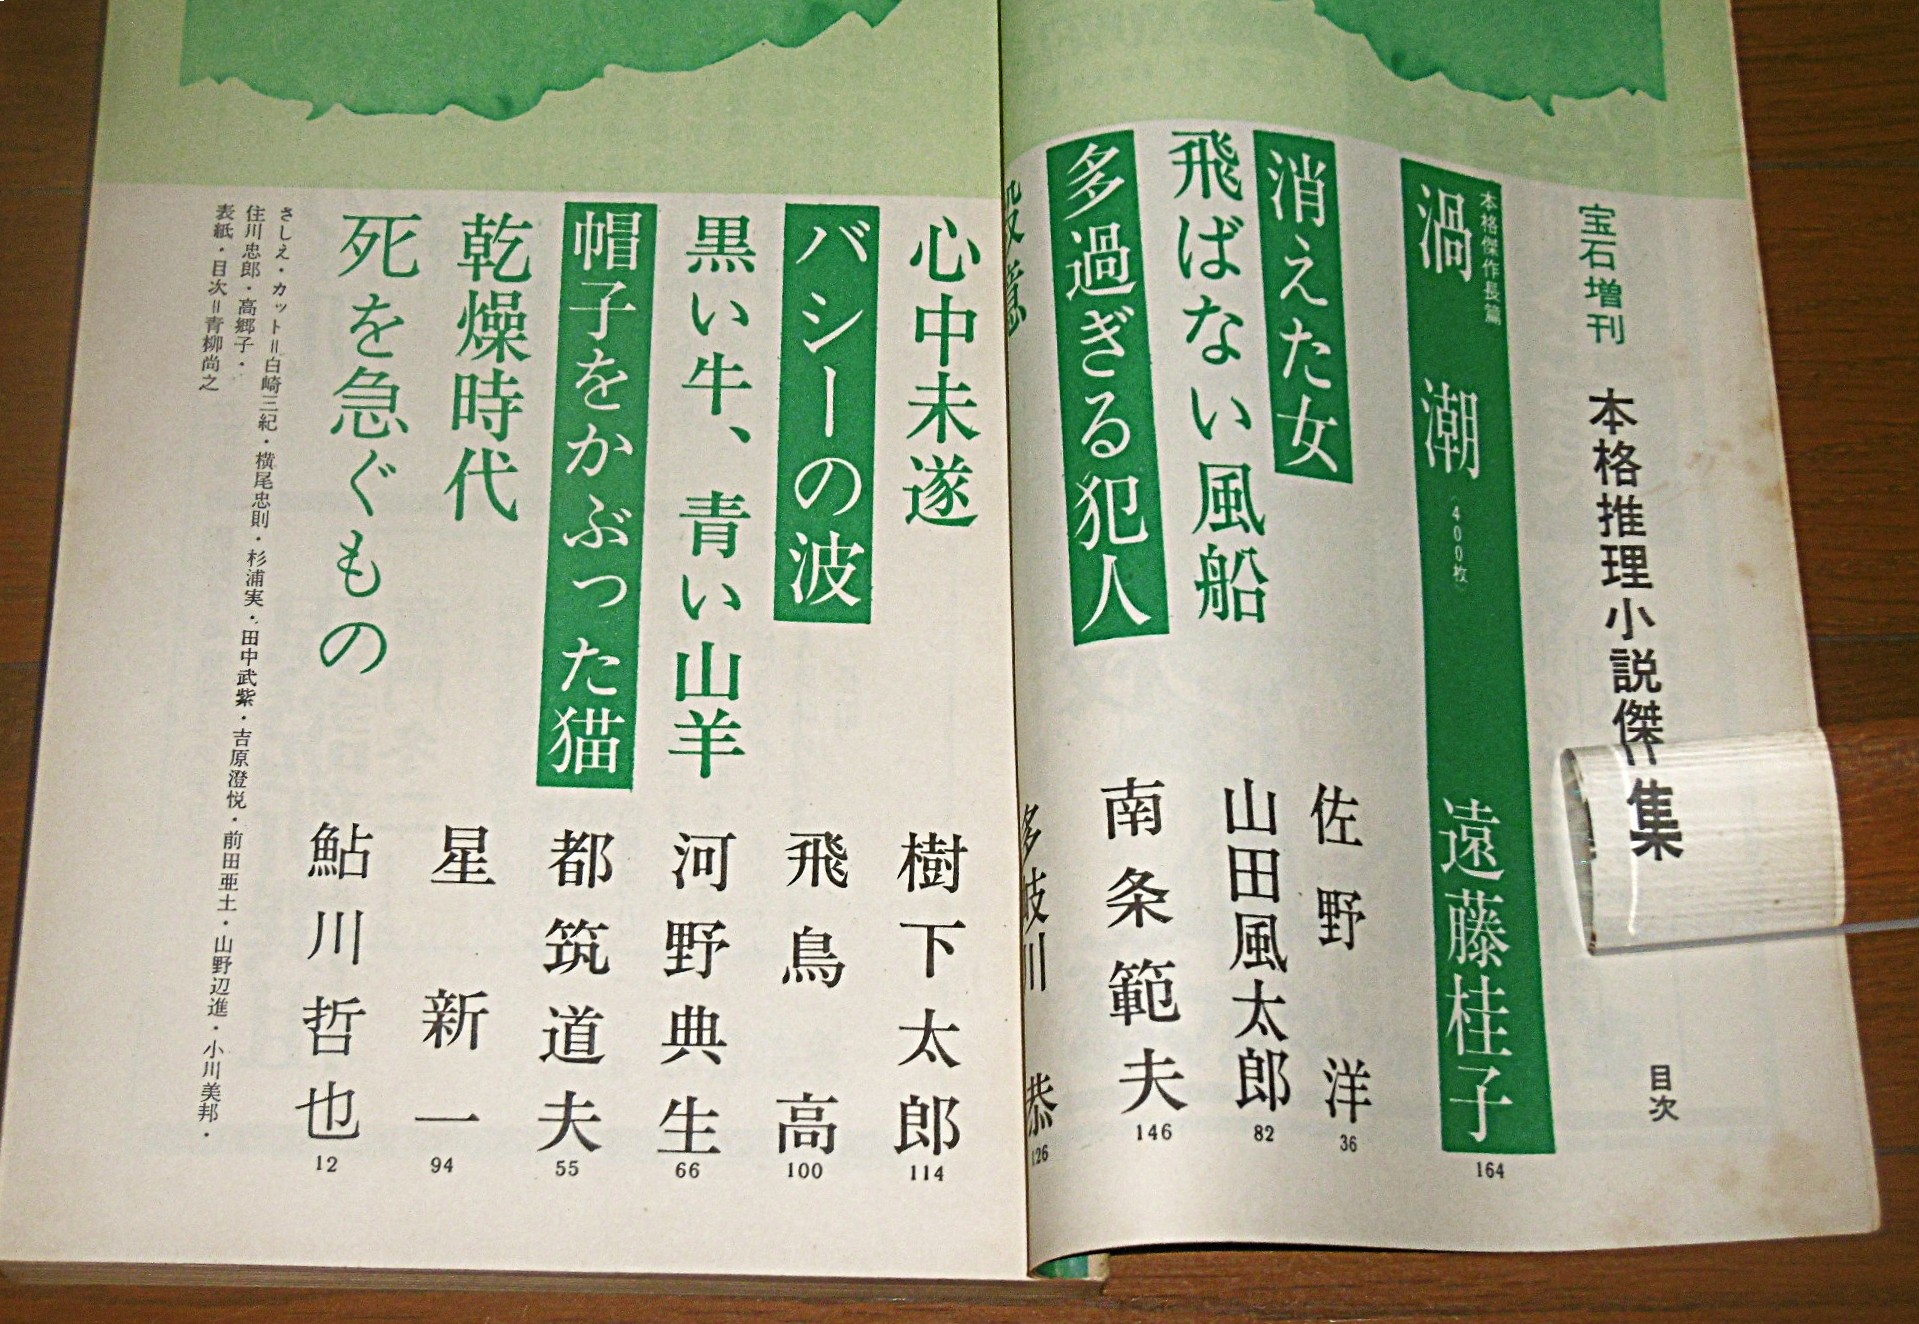 宝石増刊 本格推理小説傑作集 目次
本格傑作長篇
渦潮 (400枚) 遠藤桂子 164
消えた女 佐野洋 36
飛ばない風船 山田風太郎 82
多過ぎる犯人 南条範夫 146
殺意 多岐川恭 126
心中未遂 樹下太郎 114
バシーの波 飛鳥高 100
黒い牛、青い山羊 河野典生 66
帽子をかぶった猫 都筑道夫 55
乾燥時代 星新一 94
死を急ぐもの 鮎川哲也 12
さしえ・カット＝白崎三紀・横尾忠則・杉浦実・田中武紫・吉原澄悦・前田亜土・山野辺進・小川美邦・
住川忠郎・高郷子・
表紙・目次＝青柳尚之